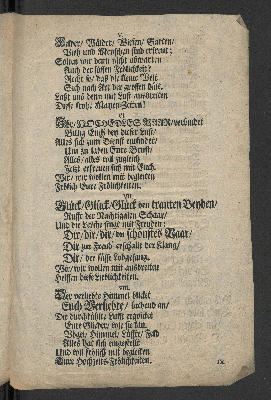 V.
Felder/ Wälder/ Wiesen/ Garten/
Vieh und Menschen sind erfreut;
Solten wir dann nicht abwarten
Auch der süssen Frölichkeit?
Recht so/ daß die kleine Welt
Sich nach Art der grossen hält.
Last uns dann mit Lust ausbreiten
Diese frohe Mayen-Zeiten!
VI.
Ihr/ HOCHEDLES PAAR/ verbindet
Billig Euch von dieser Lust/
Alles sich zum Dienst einfindet/
Und zu laben Eure Brust/
Alles/ alles will zugleich
Jetzt erfreuen sich mit Euch.
Wir/ wir wollen mit begleiten
Frölich Eure Frölichkeiten.
Glück/ Glück/ Glück den trauten Beyden/
Rufft der Nachtigalen Schaar/
Und die Lerche singt mit Freuden:
Dir/ dir/ dir/ du schönstes Paar/
Dir zur Freud erschallt der Klang/
Dir/ der süsse Lobgesang.
Wir/ wir wollen mit ausbreiten
Helffen diese Lieblichkeiten.
VIII.
Der verliebte Himmel blicket
Euch Verliebte/ lachend an/
Die durchkühlte Lufft erquicket
Eure Glieder/ wie sie kan.
Vögel/ Himmel/ Lüffte/ Feld
Alles hat sich eingestellt
Und will frölich mit begleiten
Eure Hochzeits-Frölichkeiten.
IX.